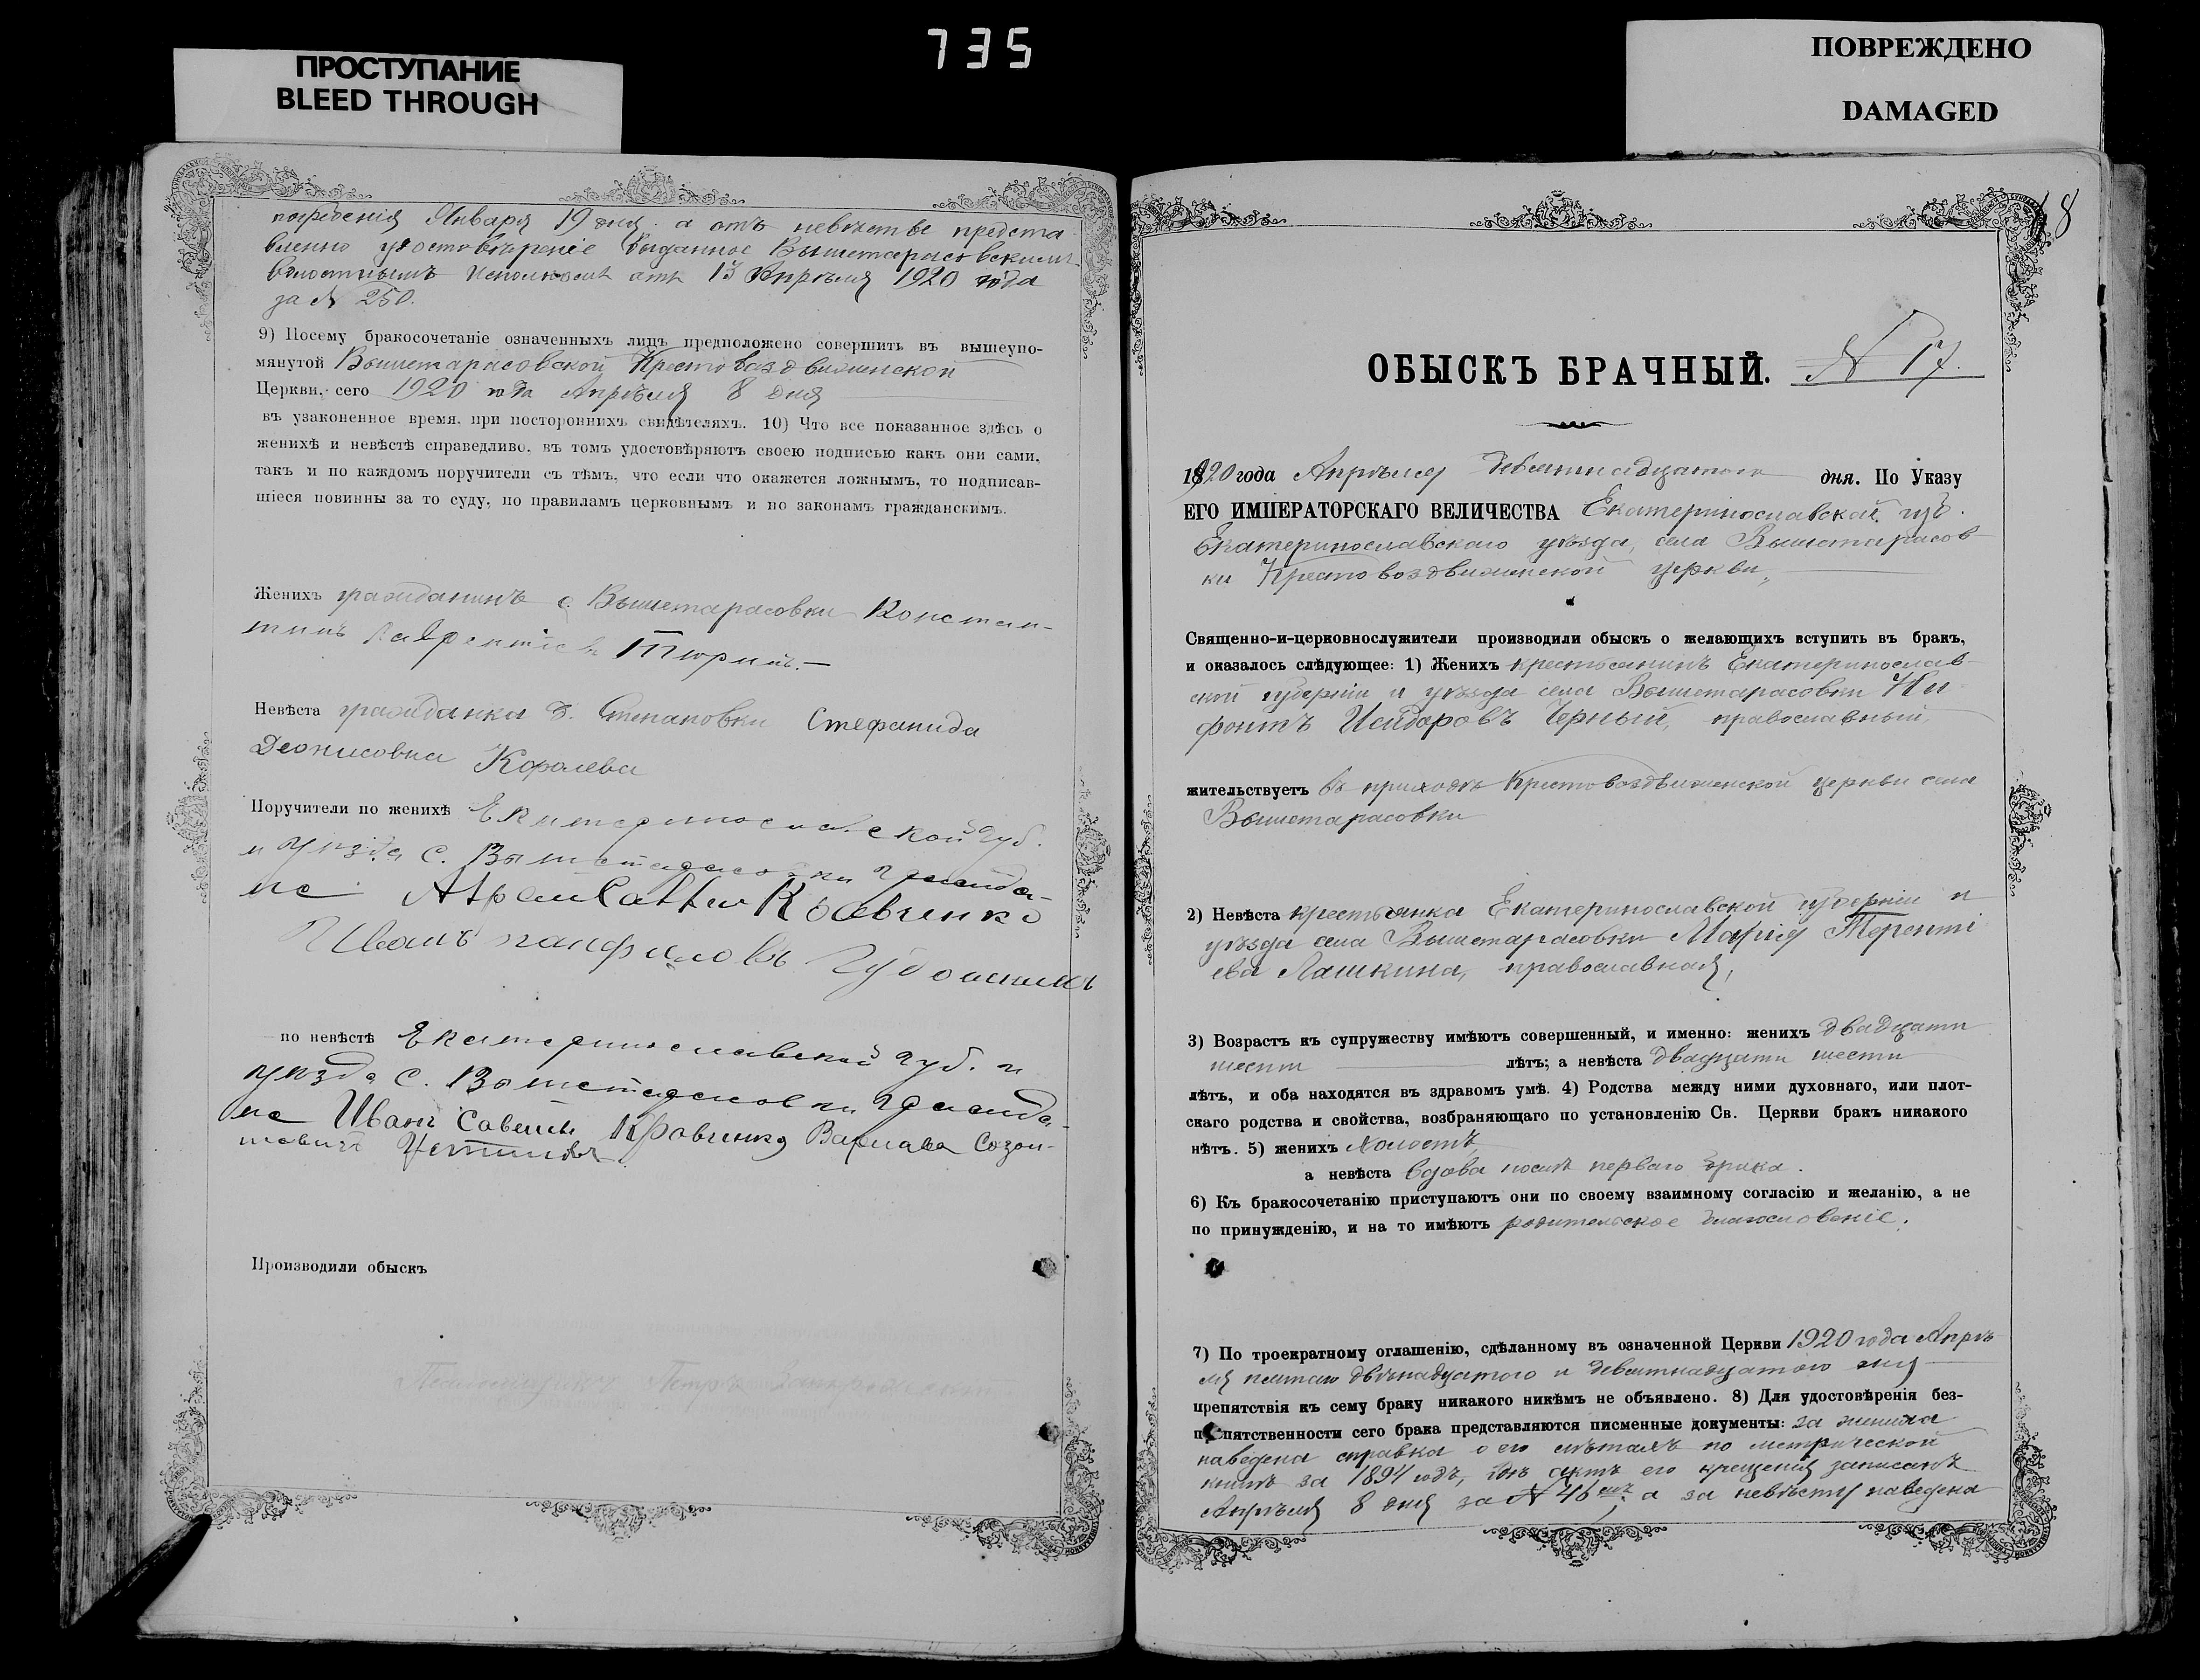 735
ПРОСТУПАНИЕ
BLEED THROUGH
ПОВРЕЖДЕНО
DAMAGED
погребенія Января 19 дня. а отъ невѣсты предста
влено удостовѣреніе выданное Вышетарасовскимъ
волостнымъ отъ 13 Апрѣля 1920 года
за № 250.
9) Посему бракосочетаніе означенныхъ лицъ предположено совершить въ вышеупо-
мянутой Вышетарасовской Крестовоздвиженской
Церкви, сего 1920 года Апрѣля 8 дня
въ узаконенное время, при постороннихъ свидѣтеляхъ. 10) Что все показанное здѣсь о
женихѣ и невѣстѣ справедливо, въ томъ удостовѣряютъ своею подписью какъ они сами,
такъ и по каждомъ поручители съ тѣмъ, что если что окажется ложнымъ, то подписав-
шіеся повинны за то суду, по правиламъ церковнымъ и по законамъ гражданскимъ.
Женихъ гражданинъ с. Вышетарасовки Констан-
тинъ Лаврентіевъ Тюринъ.
Невѣста гражданка д. Степановки Стефанида
Деонисовна Королева
Поручители по женихѣ Екатеринославской губ.
и уѣзда с. Вышетарасовки гражда-
не Кравченко
Иванъ панфиловъ
по невѣстѣ Екатеринославской губ. и
уѣзда с. Вышетарасовки гражда-
не Иванъ Савельевъ Кравченко Варлаам Созон-
товичъ
Производили обыскъ
18
ОБЫСКЪ БРАЧНЫЙ. № 17.
1920 года Апрѣля девятнадцатого дня. По Указу
ЕГО ИМПЕРАТОРСКАГО ВЕЛИЧЕСТВА Екатеринославской губ.
Екатеринославскаго уѣзда, села Вышетарасов
ки Крестовоздвиженской церкви,
Священно-и-церковнослужители производили обыскъ о желающихъ вступить въ бракъ,
и оказалось слѣдующее: 1) Женихъ крестьянинъ Екатеринослав
ской губерніи и уѣзда села Вышетарасовки Ки
фонтъ Исидоровъ Черный, православный
жительствуетъ въ приходѣ Крестовоздвиженской церкви села
Вышетарасовки
2) Невѣста крестьянка Екатеринославской губерніи и
уѣзда села Вышетарасовки Марія Теренти
ева Лашкина, православная,
3) Возрастъ къ супружеству имѣютъ совершенный, и именно: женихъ двадцати
шести лѣтъ; а невѣста двадцати шести
лѣтъ, и оба находятся въ здравомъ умѣ. 4) Родства между ними духовнаго, или плот-
скаго родства и свойства, возбраняющаго по установленію Св. Церкви бракъ никакого
нѣтъ. 5) женихъ холостъ
а невѣста вдова послѣ перваго брака.
6) Къ бракосочетанію приступаютъ они по своему взаимному согласію и желанію, а не
по принужденію, и на то имѣютъ родительское благословеніе.
7) По троекратному оглашенію, сдѣланному въ означенной Церкви 1920 года Апрѣ
ля пятаго двѣнадцатого и девятнадцатого дня
препятствія къ сему браку никакого никѣмъ не объявлено. 8) Для удостовѣренія без-
препятственности сего брака представляются писменные документы: за жениха
наведена справка о его лѣтахъ по метрической
книгѣ за 1894 годъ, гдѣ актъ его крещенія записанъ
Апрѣля 8 дня за № 46 а за невѣсту наведена